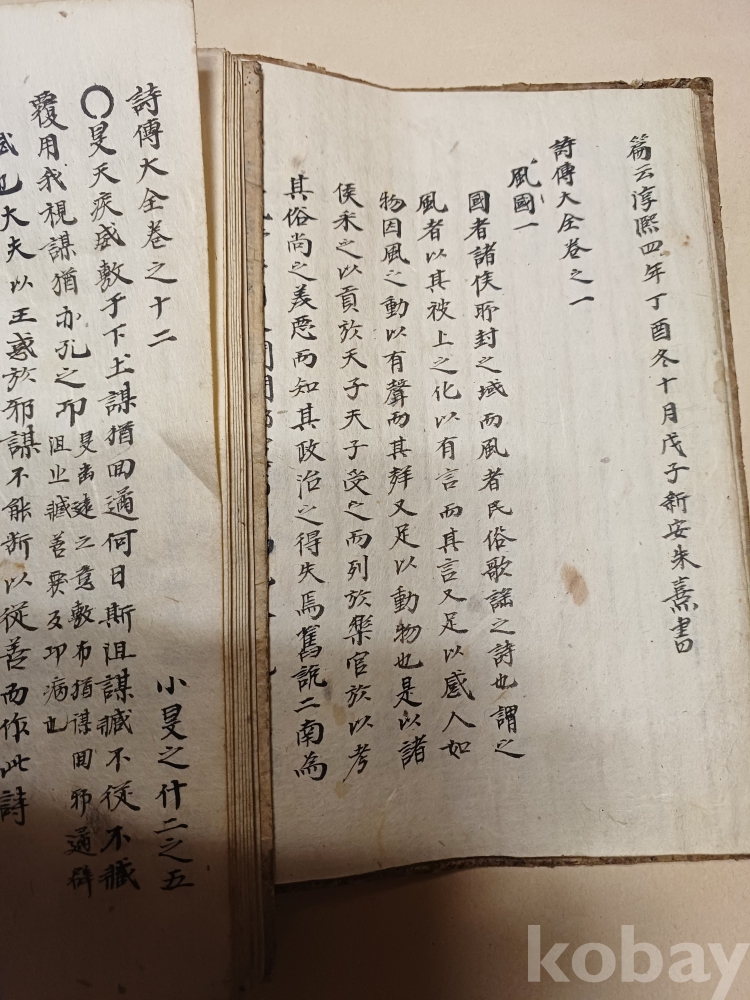 篇云淳熙四年丁酉冬十月戊子新安朱熹書
詩傳大全卷之一
風國一
國者諸侯所封之域而風者民俗歌謠之詩也謂之
風者以其被上之化以有言而其言又足以感人如
物因風之動以有聲而其聲又足以動物也是以諸
侯采之以貢於天子天子受之而列於樂官於以考
其俗尚之美惡而知其政治之得失焉舊說二南為
詩傳大全卷之十二
小旻之什二之五
○旻天疾威敷于下土謀猶回遹何日斯沮謀臧不從不臧
覆用我視謀猶亦孔之卭 旻幽遠之意敷布猶謀回邪遹辟
沮止臧善覆反卭病也
大夫以王惑於邪謀不能斷以從善而作此詩
kobay